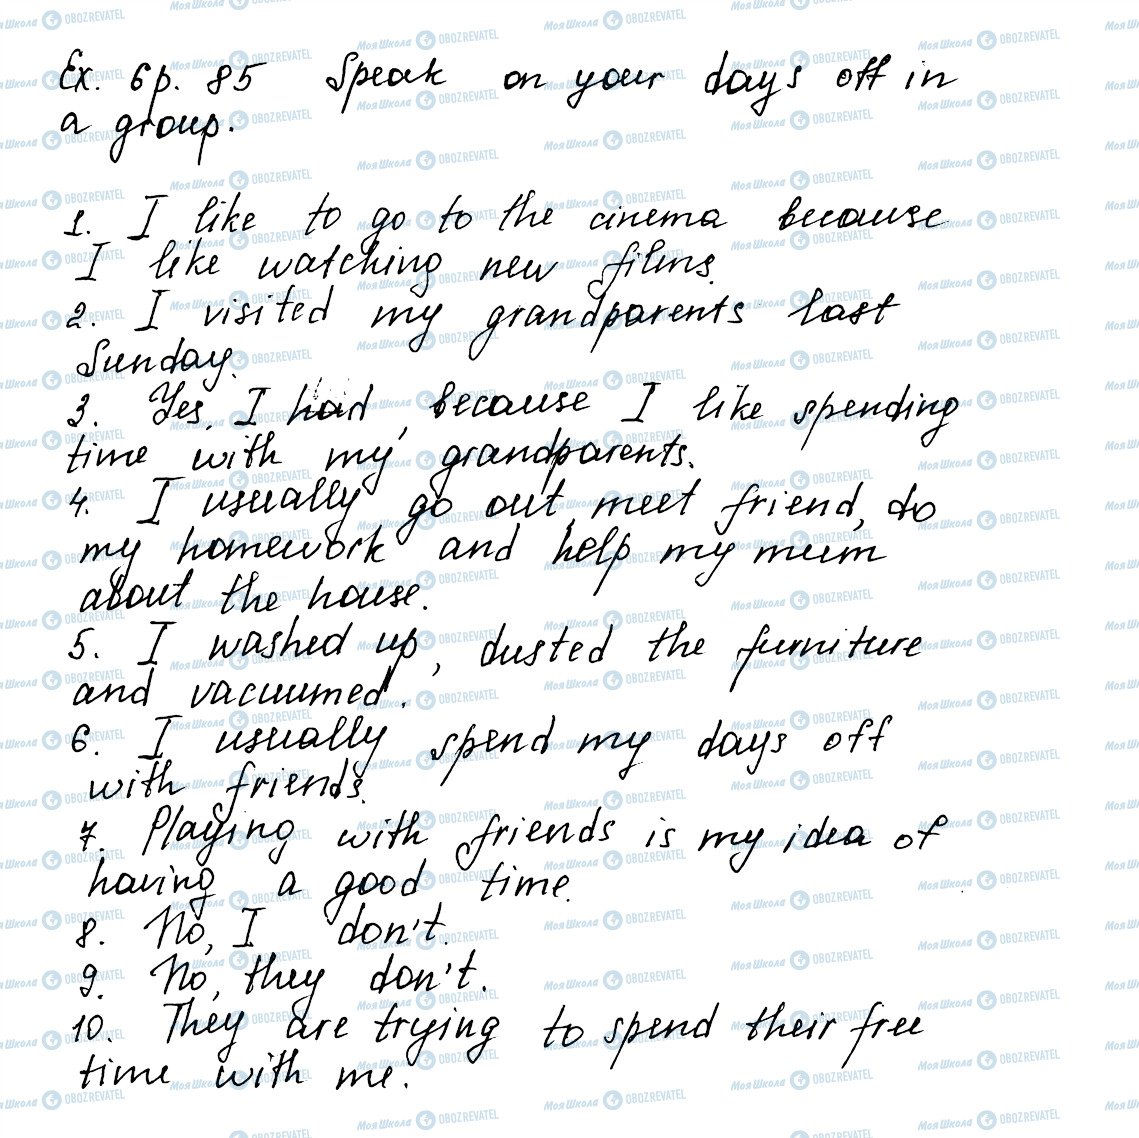 Ex. 6 p. 85 Speak on your days off in
a group.
1. I like to go to the cinema because
I like watching new films.
2. I visited my grandparents last
Sunday.
3. Yes, I had, because I like spending
time with my grandparents.
4. I usually go out, meet friend, do
my homework and help my mum
about the house.
5. I washed up, dusted the furniture
and vacuumed.
6. I usually spend my days off
with friends.
7. Playing with friends is my idea of
having a good time.
8. No, I don't.
9. No, they don't.
10. They are trying to spend their free
time with me.
Моя Школа OBOZREVATEL